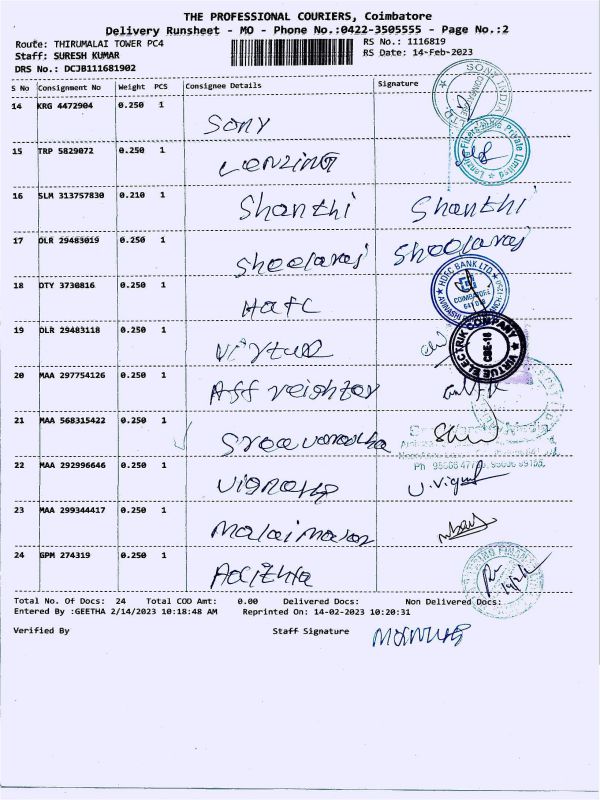 THE PROFESSIONAL COURIERS, Coimbatore
Delivery Runsheet - MO - Phone No.:0422-3505555 - Page No.:2
Route: THIRUMALAI TOWER PC4 RS No.: 1116819
Staff: SURESH KUMAR RS Date: 14-Feb-2023
DRS No.: DCJB111681902
S No Consignment No Weight PCS Consignee Details Signature
14 KRG 4472904 0.250 1 Sony
15 TRP 5829072 0.250 1 Lenzing
16 SLM 313757830 0.210 1 Shanthi Shanthi
17 DLR 29483019 0.250 1 Sheelaraj Sheelaraj
18 DTY 3730816 0.250 1 HDFC
HDFC BANK LTD
COIMBATORE
19 DLR 29483118 0.250 1 Virtue
VIRTUE ELECTRIK COMPANY
CBE-18
20 MAA 297754126 0.250 1
21 MAA 568315422 0.250 1
22 MAA 292996646 0.250 1 U.Vignesh
23 MAA 299344417 0.250 1 Malaimalar
24 GPM 274319 0.250 1
Total No. Of Docs: 24 Total COD Amt: 0.00 Delivered Docs: Non Delivered Docs:
Entered By :GEETHA 2/14/2023 10:18:48 AM Reprinted On: 14-02-2023 10:20:31
Verified By Staff Signature